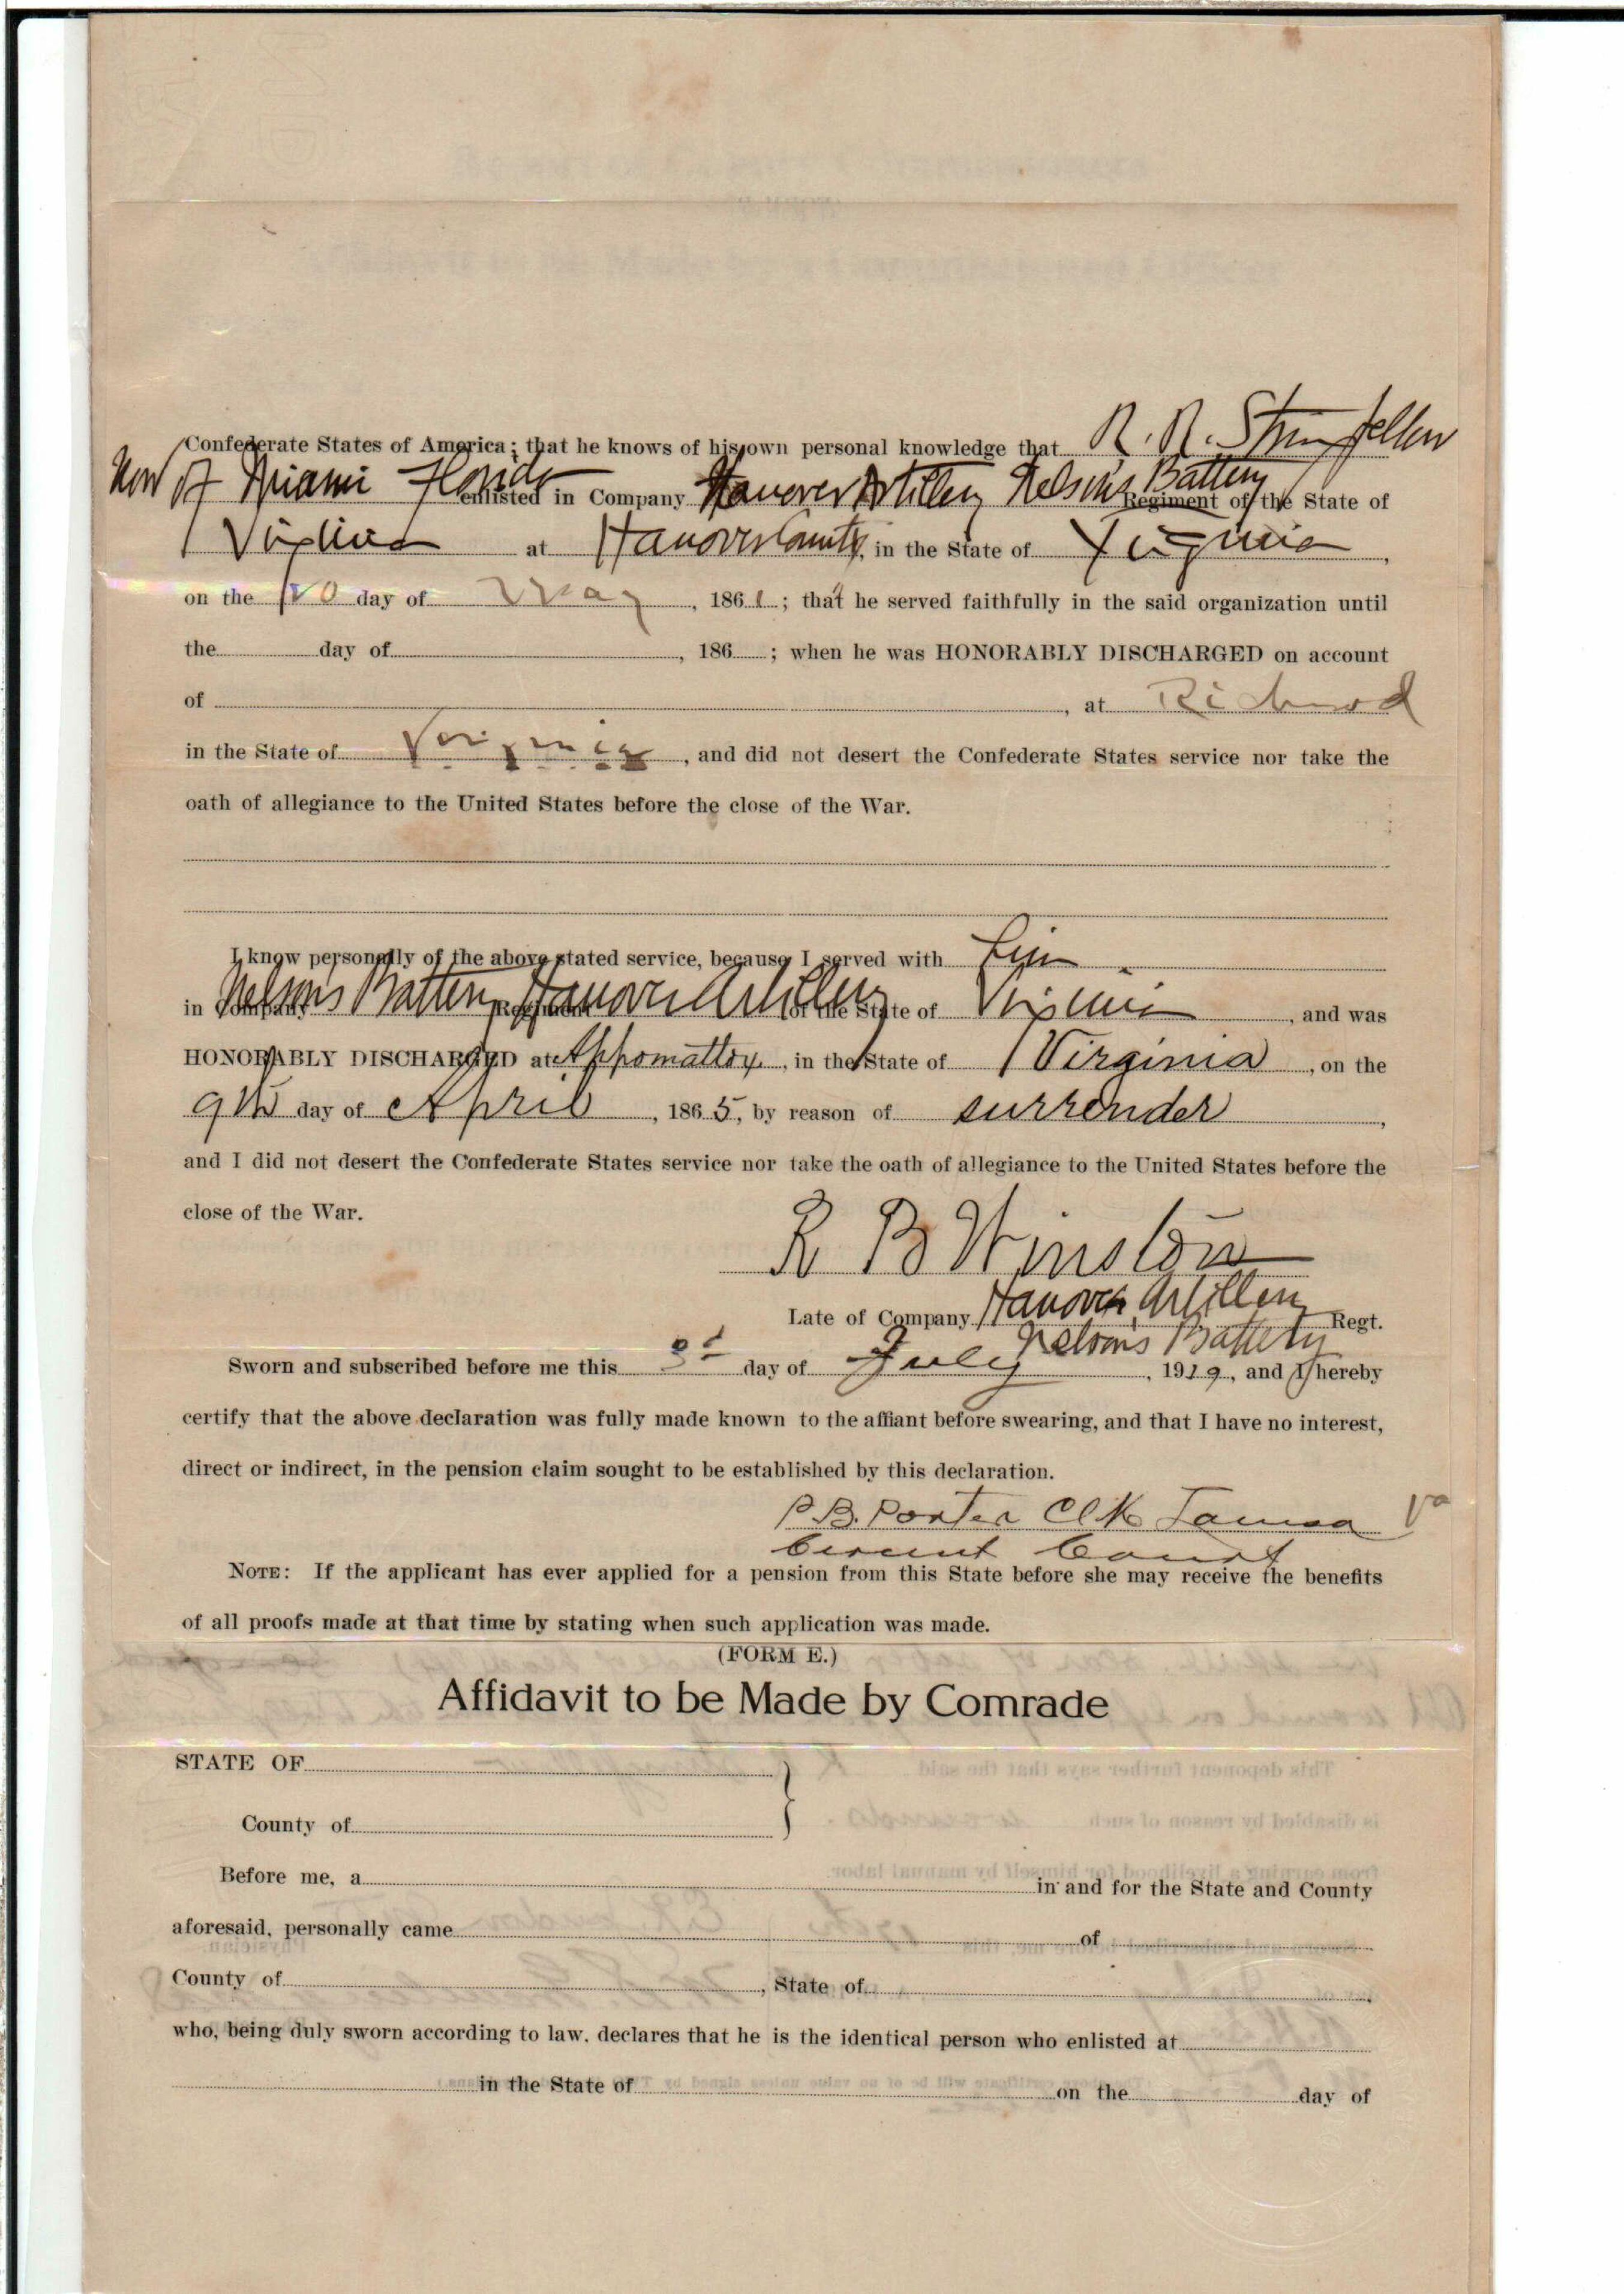 Confederate States of America; that he knows of his own personal knowledge that R. R. Stringfellow
Now of Miami Florida enlisted in Company Hanover Artillery Nelson's Battery Regiment of the State of
Virginia at Hanover County, in the State of Virginia,
on the day of May, 1861; that he served faithfully in the said organization until
the day of , 186 ; when he was HONORABLY DISCHARGED on account
of , at Richmond
in the State of Virginia, and did not desert the Confederate States service nor take the
oath of allegiance to the United States before the close of the War.
I know personally of the above stated service, because I served with him
in Company Nelsons Battery Regiment Hanover Artillery of the State of Virginia, and was
HONORABLY DISCHARGED at Appomattox, in the State of Virginia, on the
9th day of April, 1865, by reason of surrender,
and I did not desert the Confederate States service nor take the oath of allegiance to the United States before the
close of the War.
R B Winston
Late of Company Hanover Artillery Regt.
Nelson's Battery
Sworn and subscribed before me this 3d day of July, 1919, and I hereby
certify that the above declaration was fully made known to the affiant before swearing, and that I have no interest,
direct or indirect, in the pension claim sought to be established by this declaration.
P. B. Porter Clk Louisa Va
Circuit Court
NOTE: If the applicant has ever applied for a pension from this State before she may receive the benefits
of all proofs made at that time by stating when such application was made.
(FORM E.)
Affidavit to be Made by Comrade
STATE OF
County of
Before me, a in and for the State and County
aforesaid, personally came of
County of , State of ,
who, being duly sworn according to law, declares that he is the identical person who enlisted at
in the State of on the day of